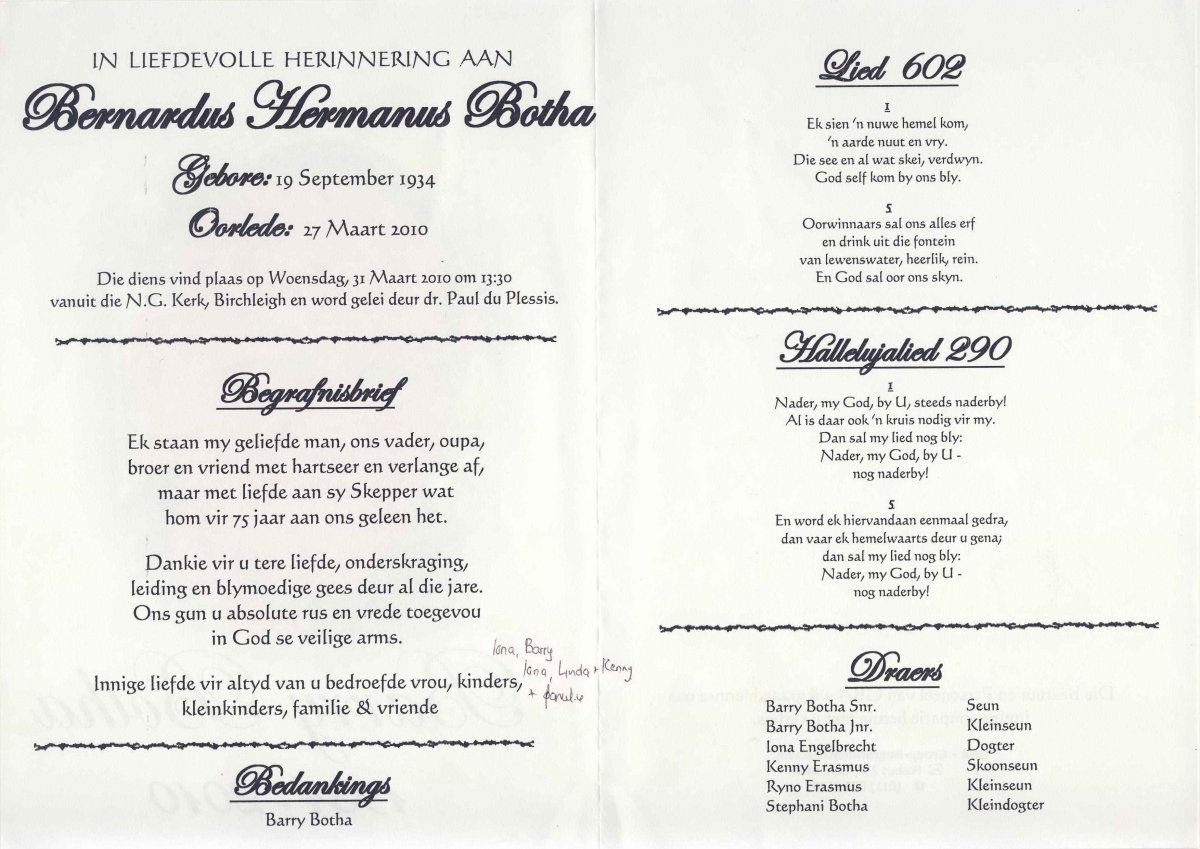 IN LIEFDEVOLLE HERINNERING AAN
Bernardus Hermanus Botha
Gebore: 19 September 1934
Oorlede: 27 Maart 2010
Die diens vind plaas op Woensdag, 31 Maart 2010 om 13:30
vanuit die N.G. Kerk, Birchleigh en word gelei deur dr. Paul du Plessis.
Begrafnisbrief
Ek staan my geliefde man, ons vader, oupa,
broer en vriend met hartseer en verlange af,
maar met liefde aan sy Skepper wat
hom vir 75 jaar aan ons geleen het.
Dankie vir u tere liefde, onderskraging,
leiding en blymoedige gees deur al die jare.
Ons gun u absolute rus en vrede toegevou
in God se veilige arms.
Iona, Barry
Iona, Linda + Kenny
+ familie
Innige liefde vir altyd van u bedroefde vrou, kinders,
kleinkinders, familie & vriende
Bedankings
Barry Botha
Lied 602
1
Ek sien 'n nuwe hemel kom,
'n aarde nuut en vry.
Die see en al wat skei, verdwyn.
God self kom by ons bly.
5
Oorwinnaars sal ons alles erf
en drink uit die fontein
van lewenswater, heerlik, rein.
En God sal oor ons skyn.
Hallelujalied 290
1
Nader, my God, by U, steeds naderby!
Al is daar ook 'n kruis nodig vir my.
Dan sal my lied nog bly:
Nader, my God, by U -
nog naderby!
5
En word ek hiervandaan eenmaal gedra,
dan vaar ek hemelwaarts deur u gena;
dan sal my lied nog bly:
Nader, my God, by U -
nog naderby!
Draers
Barry Botha Snr. Seun
Barry Botha Jnr. Kleinseun
Iona Engelbrecht Dogter
Kenny Erasmus Skoonseun
Ryno Erasmus Kleinseun
Stephani Botha Kleindogter